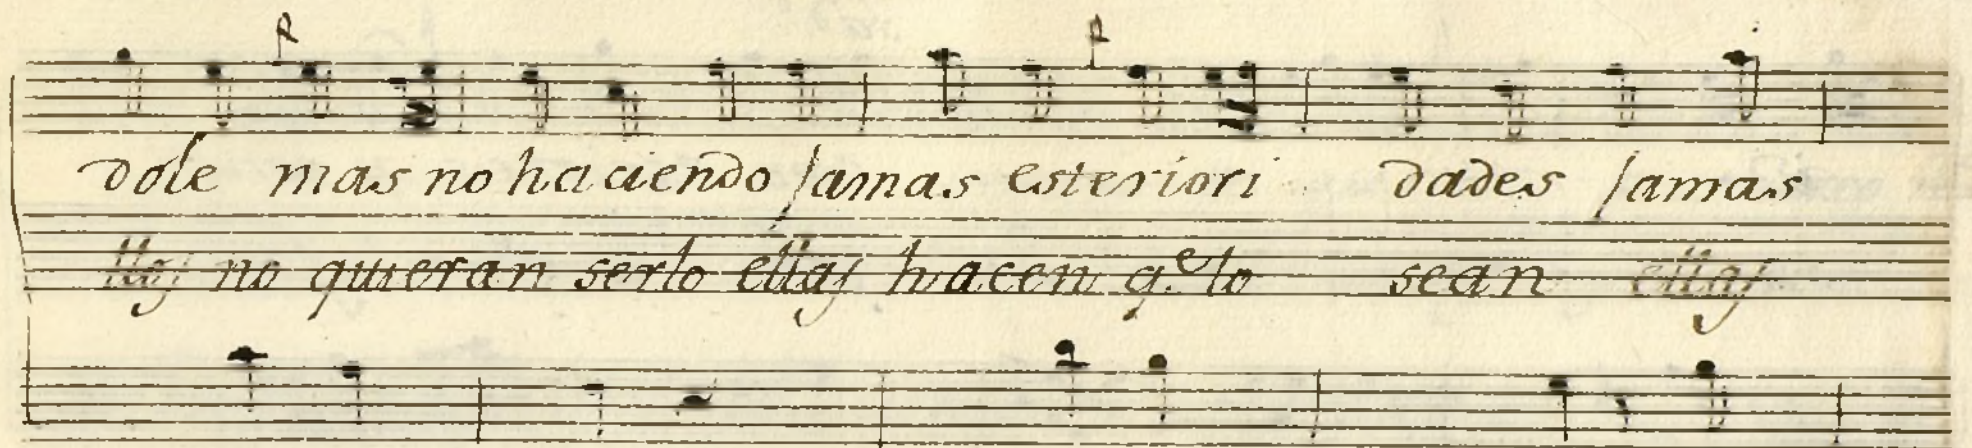 P P
dole mas no haciendo Jamas esteriori dades Jamas
llas no quieran serlo ellas hacen q.e lo sean ellas